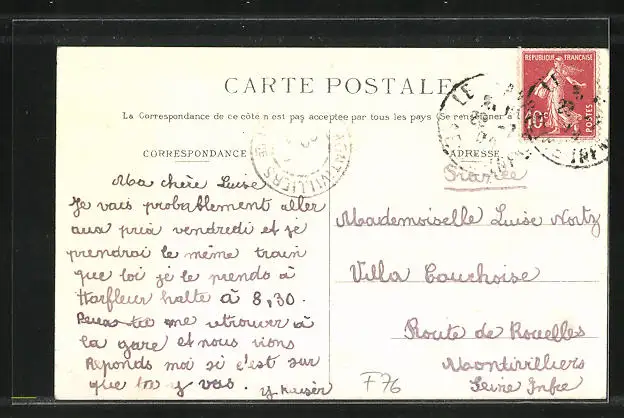 CARTE POSTALE
La Correspondance de ce côté n'est pas acceptée par tous les pays (Se renseigner à
CORRESPONDANCE
ADRESSE
REPUBLIQUE FRANÇAISE
10c
POSTES
LE
MONTIVILLIERS
Ma chère Luise
Je vais probablement aller
aux prix vendredi et je
prendrai le même train
que toi je le prends à
Harfleur halte à 8,30.
me retrouver à
la gare et nous irons
Reponds moi si c'est sur
que tu y vas.
y Kaiser
Mademoiselle Luise Nortz
Villa Cauchoise
Route de Rouelles
Montivilliers
Seine Infre
F76